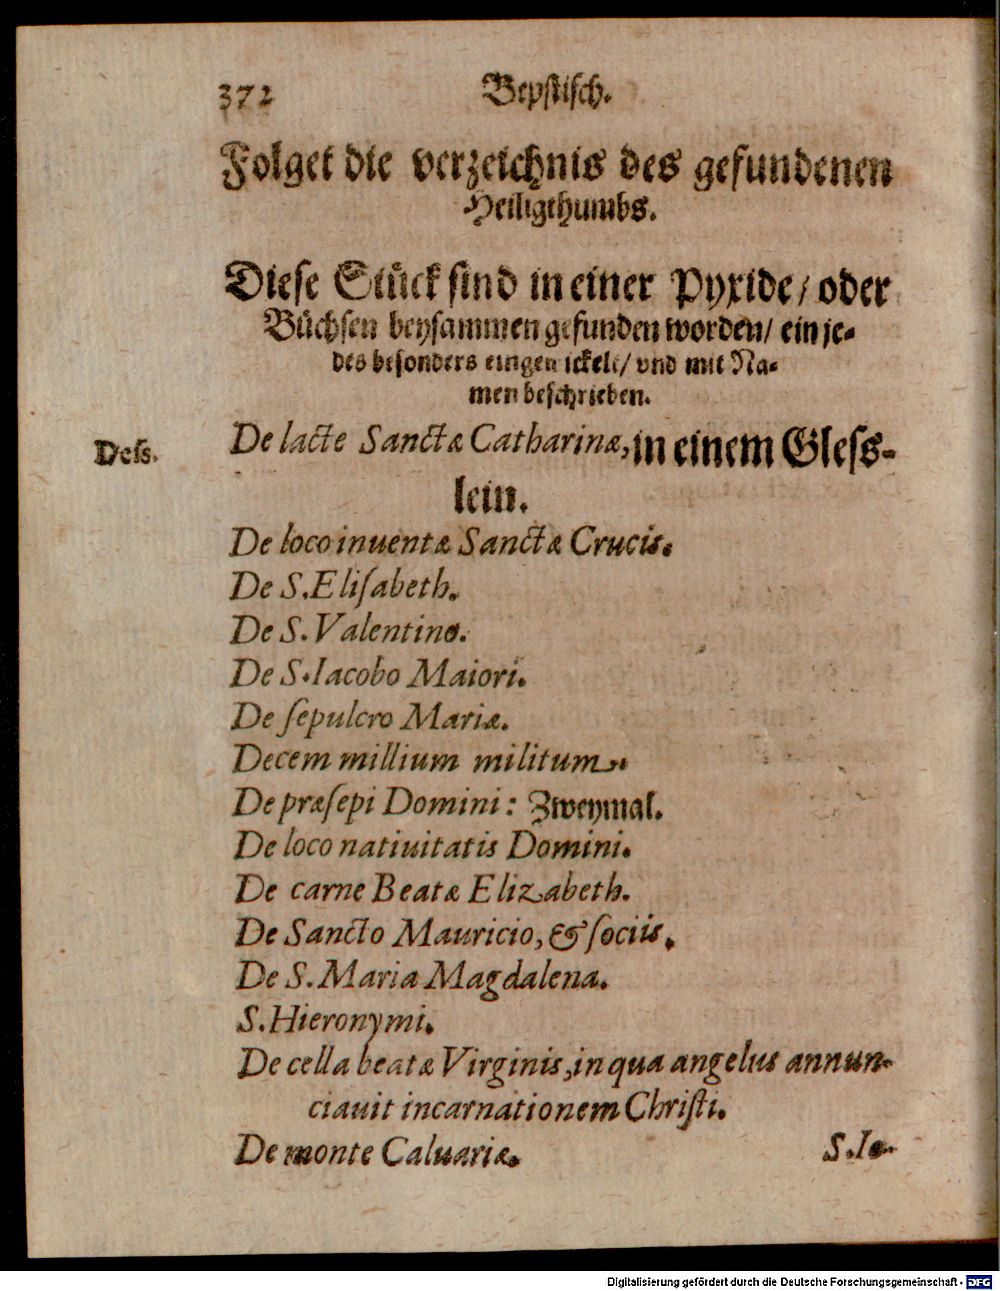 372 Bepstisch.
Folget die verzeichnis des gefundenen
Heiligthumbs.
Diese Stück sind in einer Pyxide/ oder
Büchsen beysammen gefunden worden/ ein je-
des besonders eingewickelt/ vnd mit Na-
men beschrieben.
Dess. De lacte Sanctæ Catharinæ, in einem Gless-
lein.
De loco inuentæ Sanctæ Crucis.
De S. Elisabeth.
De S. Valentino.
De S. Iacobo Maiori.
De sepulcro Mariæ.
Decem millium militum.
De præsepi Domini: Zweymal.
De loco natiuitatis Domini.
De carne Beatæ Elizabeth.
De Sancto Mauricio, & sociis.
De S. Maria Magdalena.
S. Hieronymi.
De cella beatæ Virginis, in qua angelus annun-
ciauit incarnationem Christi.
De monte Caluariæ.
S. Io-
Digitalisierung gefördert durch die Deutsche Forschungsgemeinschaft - DFG